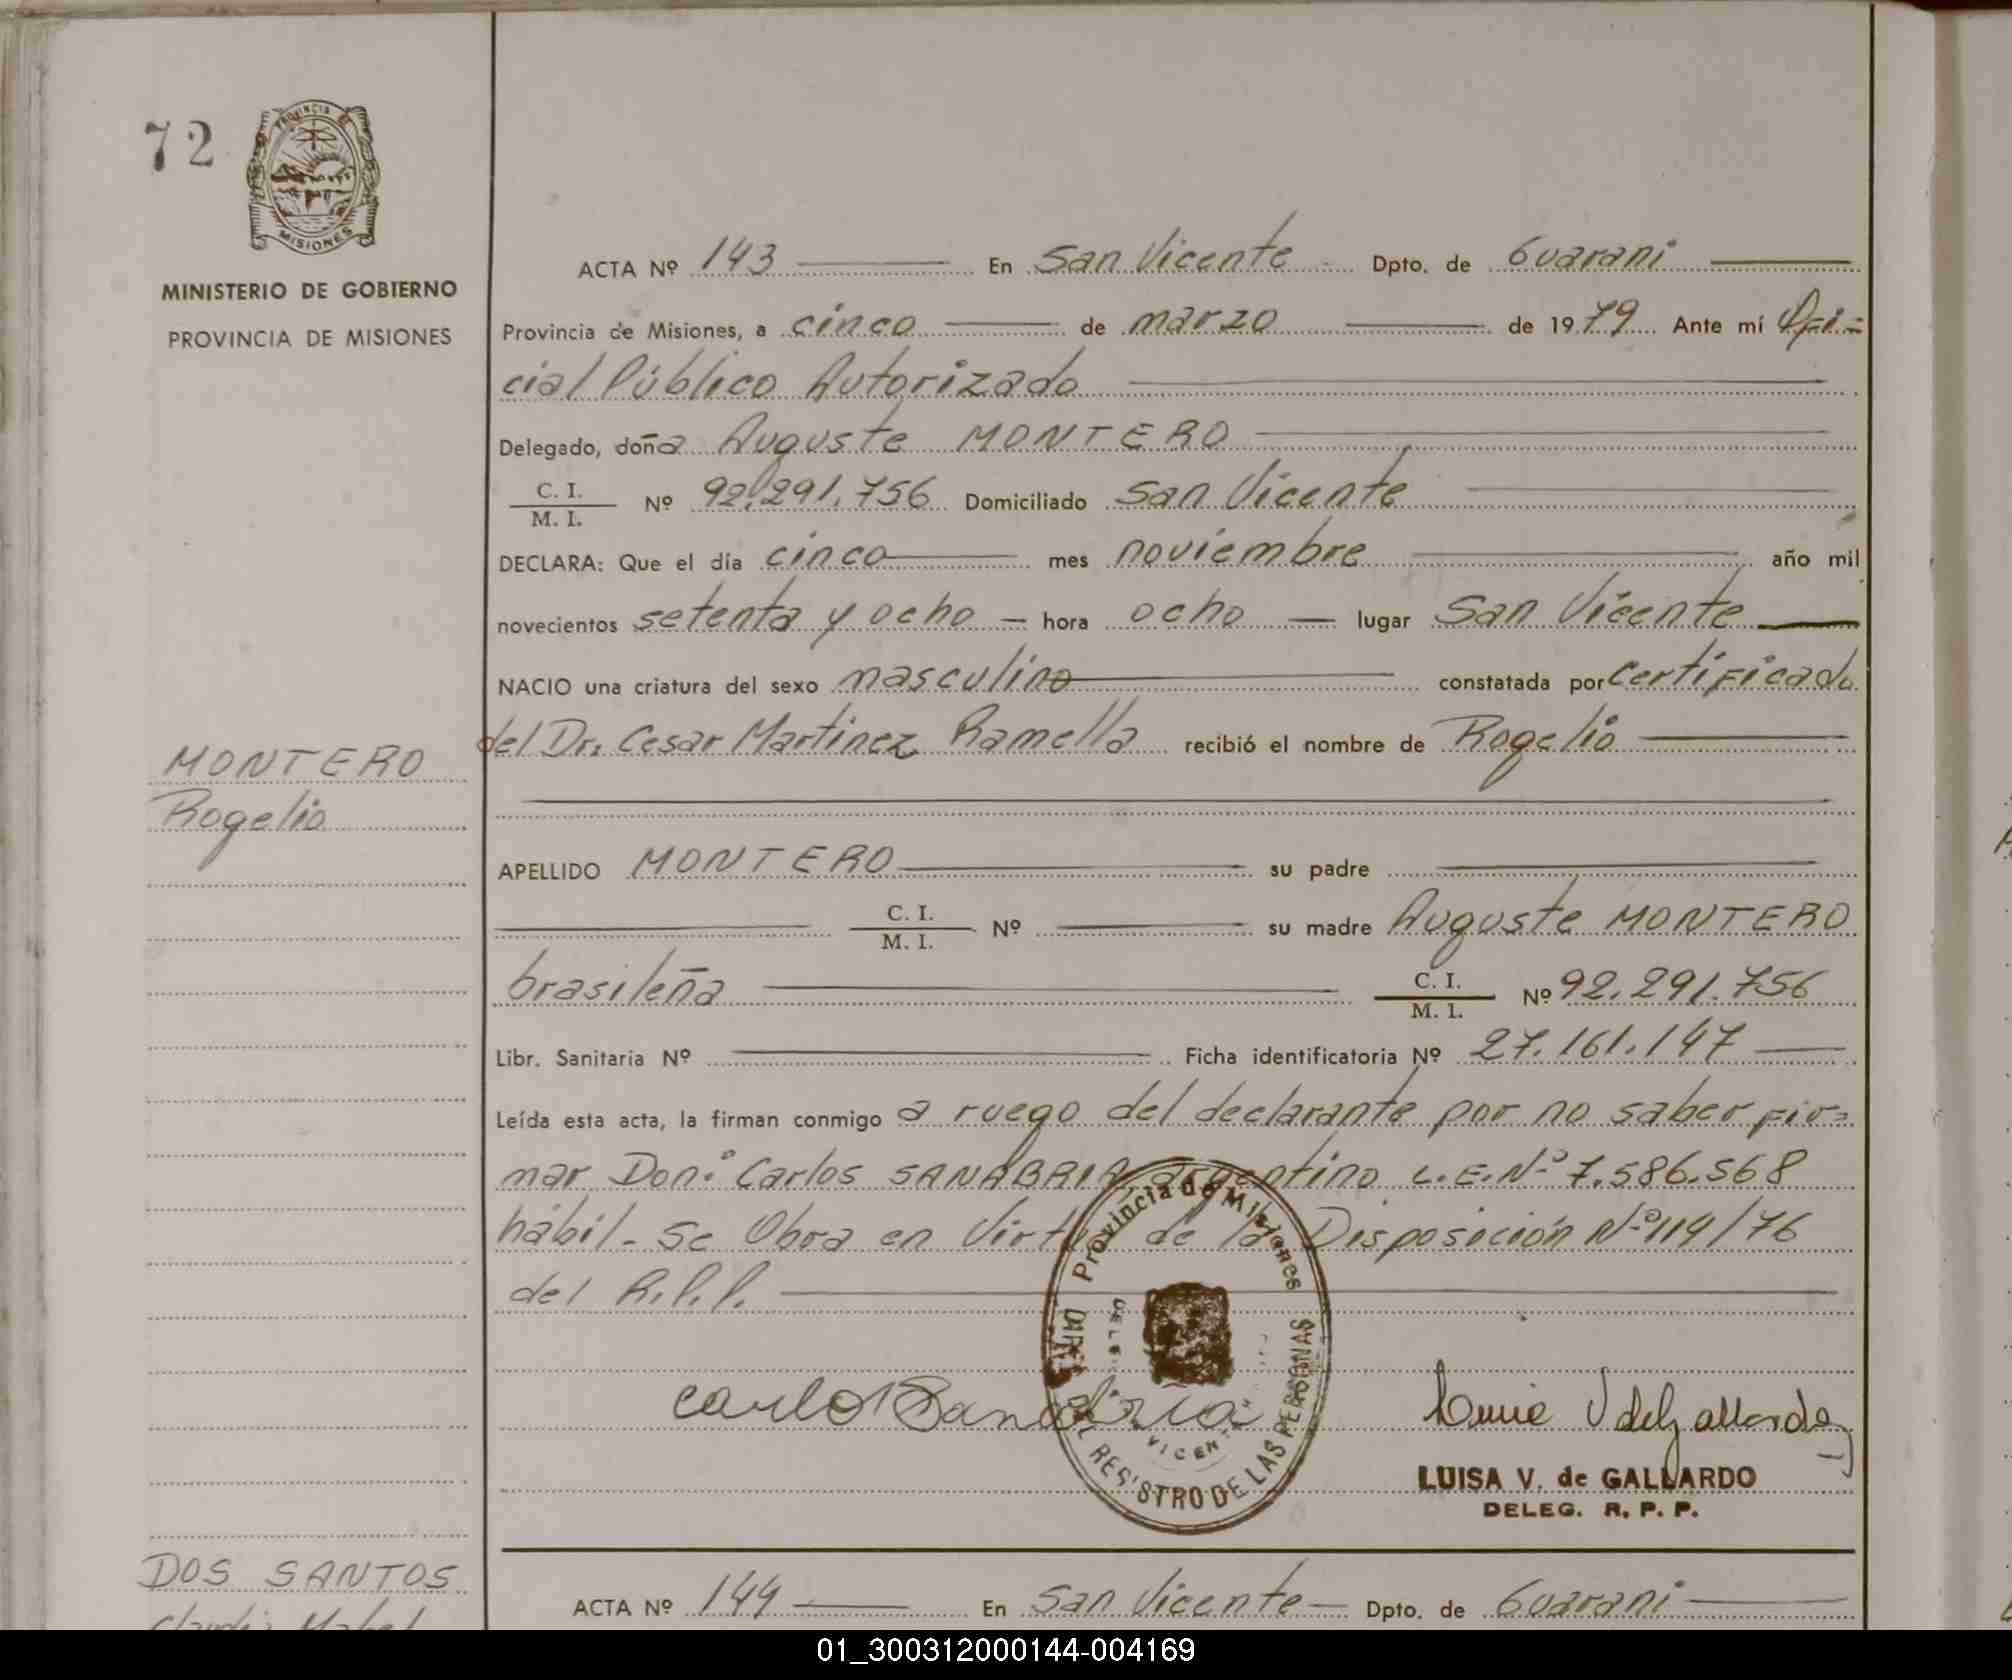 72
PROVINCIA DE
MISIONES
MINISTERIO DE GOBIERNO
PROVINCIA DE MISIONES
ACTA Nº 143 En San Vicente Dpto. de Guarani
Provincia de Misiones, a cinco de marzo de 1979. Ante mí Ofi=
cial Público Autorizado
Delegado, doña Auguste MONTERO
C. I.
M. I.
Nº 92.291.756 Domiciliado San Vicente
DECLARA: Que el día cinco mes noviembre año mil
novecientos setenta y ocho hora ocho lugar San Vicente
NACIO una criatura del sexo masculino constatada por certificado
del Dr. Cesar Martinez Ramella recibió el nombre de Rogelio
MONTERO
Rogelio
APELLIDO MONTERO su padre
C. I.
M. I.
Nº su madre Auguste MONTERO
brasileña C. I.
M. I.
Nº 92.291.756
Libr. Sanitaria Nº Ficha identificatoria Nº 27.161.147
Leída esta acta, la firman conmigo a ruego del declarante por no saber fir=
mar Don: Carlos SANABRIA, argentino L.E.Nº 7.586.568
hábil. Se Obra en Virtud de la Disposición Nº 119/76
del R.P.P.
Provincia de Misiones
REGISTRO DE LAS PERSONAS
Carlos Sanabria
Luisa V de Gallardo
LUISA V. de GALLARDO
DELEG. R. P. P.
DOS SANTOS
Claudia Mabel
ACTA Nº 144 En San Vicente Dpto. de Guarani
01_300312000144-004169